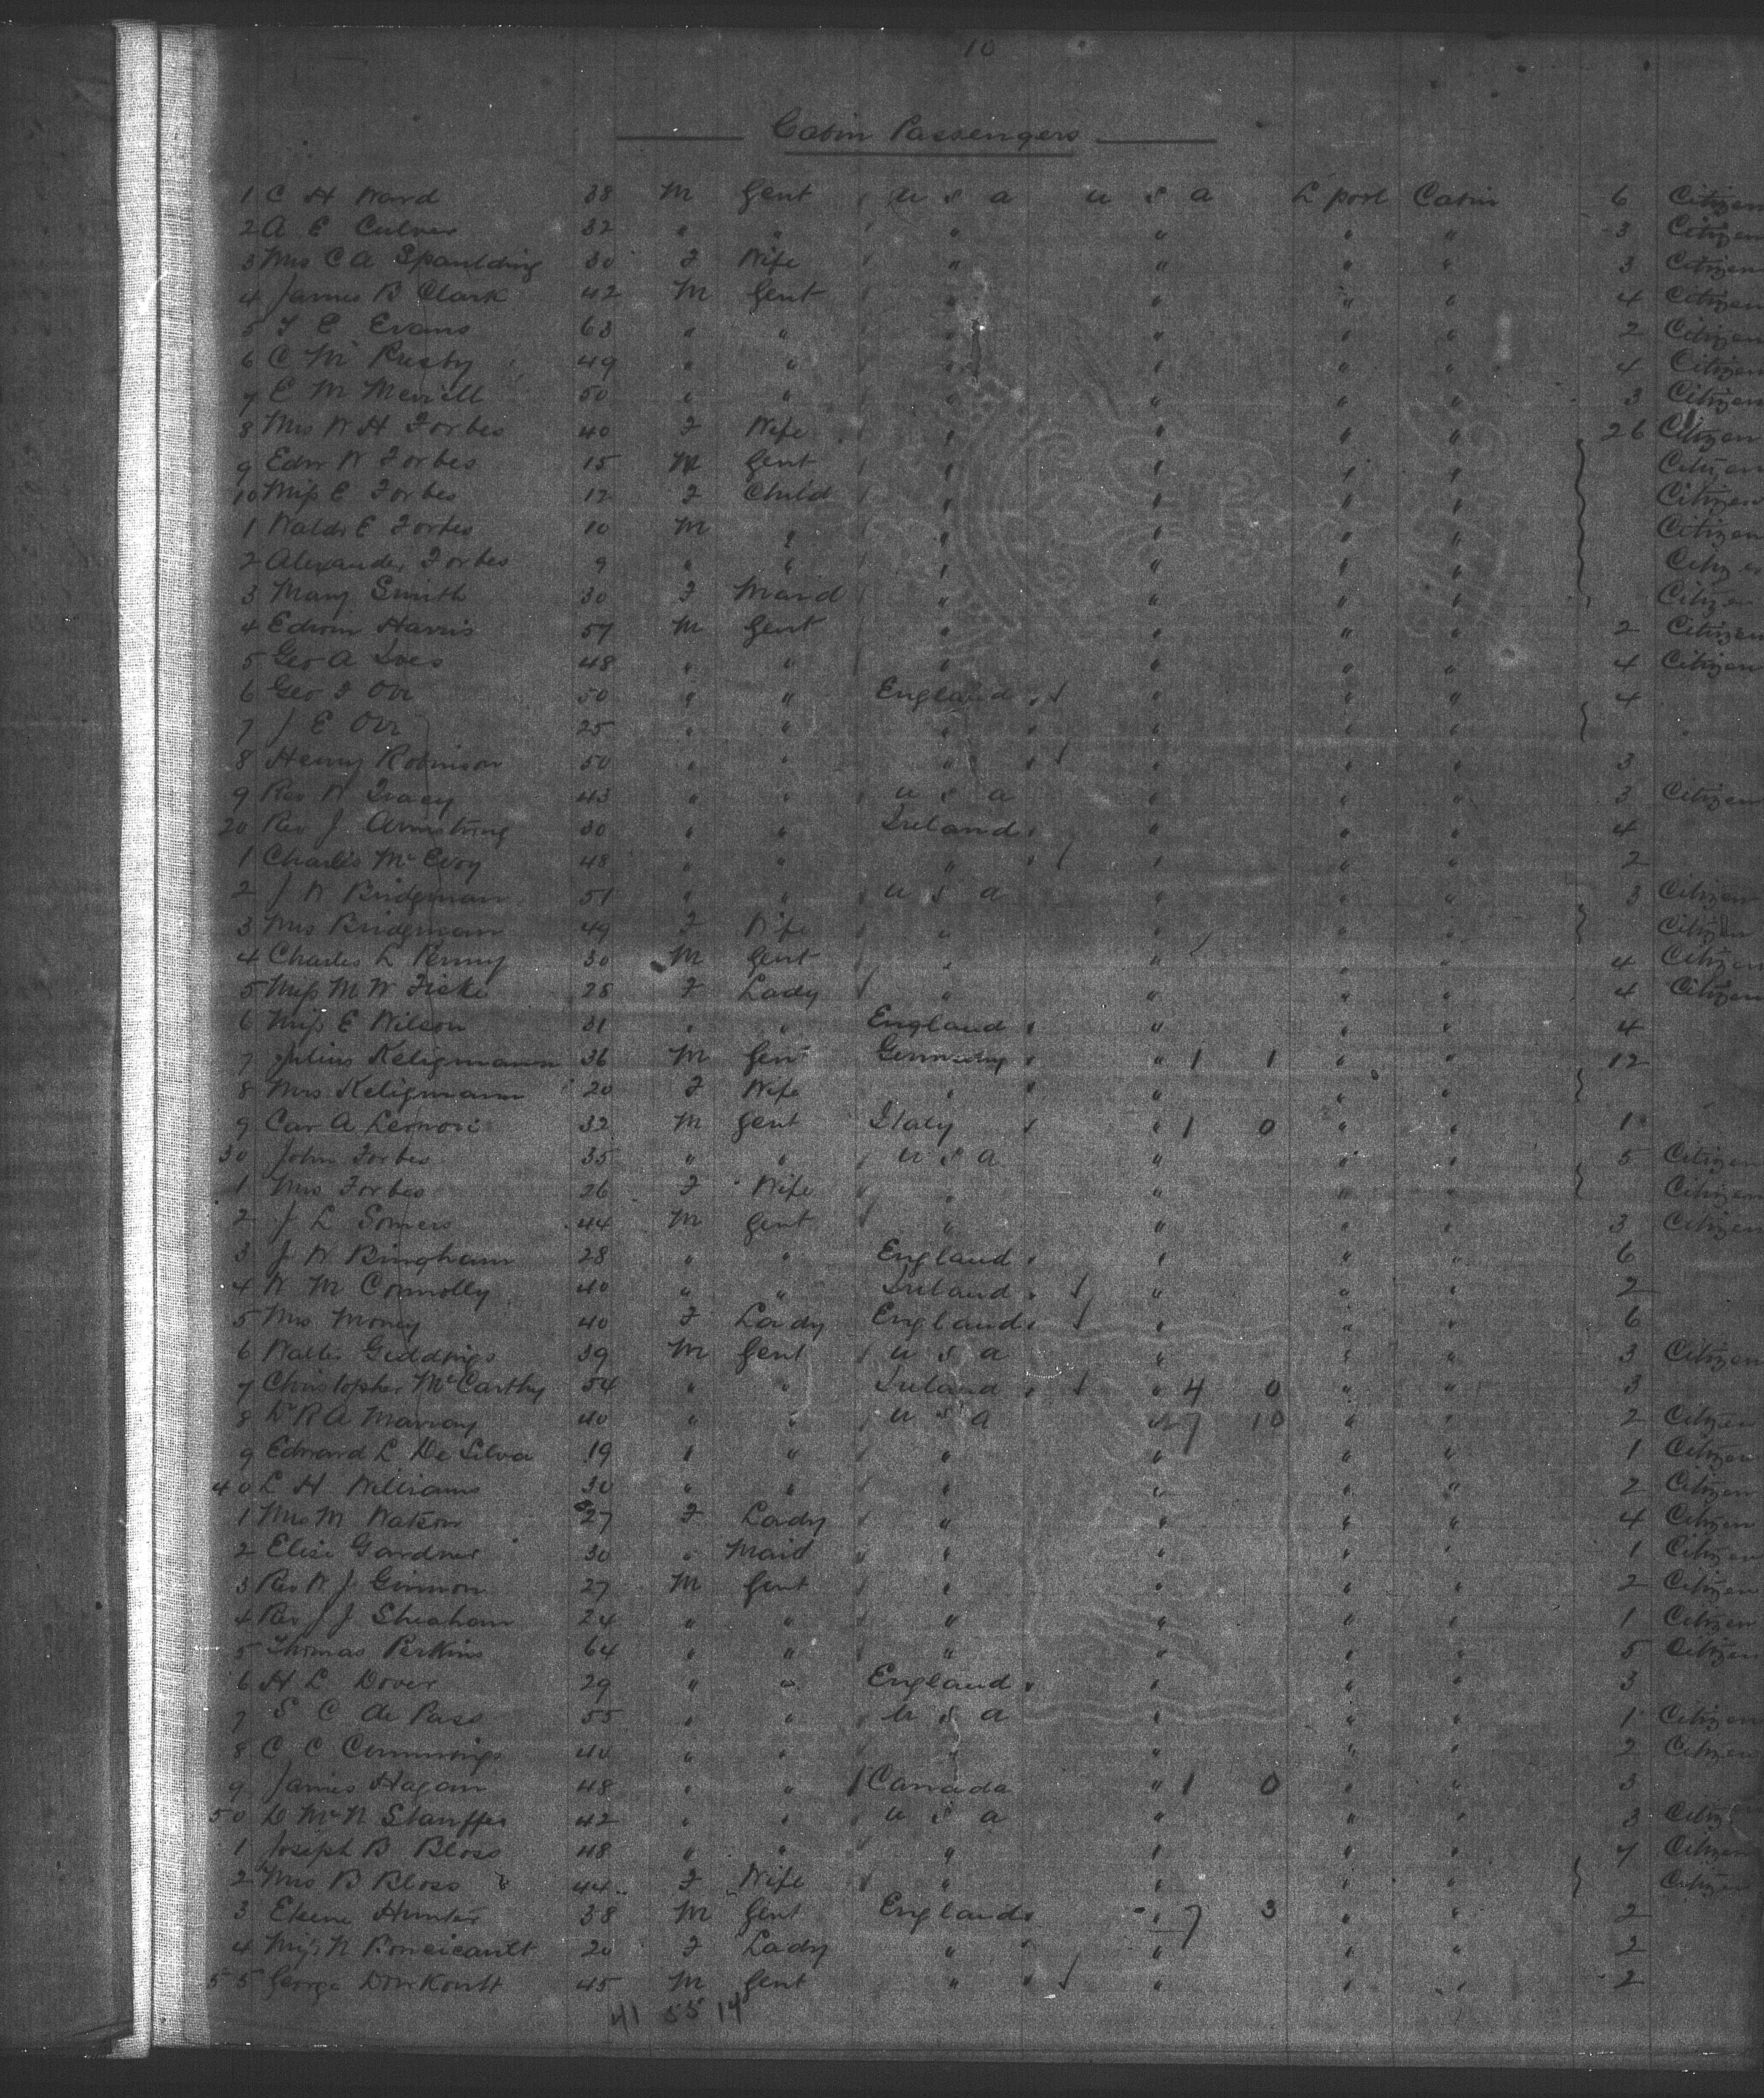 10
Cabin Passengers
1 C H Ward 38 M Gent U S A U S A L'pool Cabin 6 Citizen
2 A E Culver 32 " " " " " " 3 Citizen
3 Mrs C A Spaulding 30 F Wife " " " " 3 Citizen
4 James B Clark 42 M Gent " " " " 4 Citizen
5 T E Evans 63 " " " " " " 2 Citizen
6 C M Pusby 49 " " " " " " 4 Citizen
7 E M Merrill 50 " " " " " " 3 Citizen
8 Mrs W H Forbes 40 F Wife " " " " 26 Citizen
9 Edw W Forbes 15 M Gent " " " " Citizen
10 Miss E Forbes 12 F Child " " " " Citizen
1 Waldo E Forbes 10 M " " " " " Citizen
2 Alexander Forbes 9 " " " " " " Citizen
3 Mary Smith 30 F Maid " " " " Citizen
4 Edwin Harris 57 M Gent " " " " 2 Citizen
5 Geo A Ives 48 " " " " " " 4 Citizen
6 Geo F Orr 50 " " England " " " 4
7 J E Orr 25 " " " " " "
8 Henry Robinson 50 " " " " " " 3
9 Rev W Tracy 43 " " U S A " " " 3 Citizen
20 Rev J Armstrong 30 " " Ireland " " " 4
1 Charles McEvoy 48 " " " " " " 2
2 J W Bridgman 51 " " U S A " " " 3 Citizen
3 Mrs Bridgman 49 F Wife " " " " Citizen
4 Charles L Penny 30 M Gent " " " " 4 Citizen
5 Miss M W Fiske 28 F Lady " " " " 4 Citizen
6 Miss E Wilson 31 " " England " " " 4
7 Julius Keligmann 36 M Gent Germany " 1 1 " " 12
8 Mrs Keligmann 20 F Wife " " " "
9 Cav A 32 M Gent Italy " 1 0 " " 1
30 John Forbes 35 " " U S A " " " 5 Citizen
1 Mrs Forbes 26 F Wife " " " " Citizen
2 J L Somers 44 M Gent " " " " 3 Citizen
3 J W Bingham 28 " " England " " " 6
4 W M Connolly 40 " " Ireland " " " 2
5 Mrs Money 40 F Lady England " " " 6
6 Walter Giddings 39 M Gent U S A " " " 3 Citizen
7 Christopher McCarthy 54 " " Ireland " 4 0 " " 3
8 Dr R A Murray 40 " " U S A " 7 10 " " 2 Citizen
9 Edward L De Silva 19 " " " " " " 1 Citizen
40 L H Williams 30 " " " " " " 2 Citizen
1 Mrs M Watson 27 F Lady " " " " 4 Citizen
2 Elise Gardner 30 " Maid " " " " 1 Citizen
3 Rev W J Ginnon 27 M Gent " " " " 2 Citizen
4 Rev J J Sheaham 24 " " " " " " 1 Citizen
5 Thomas Perkins 64 " " " " " " 5 Citizen
6 H L Dover 29 " " England " " " 3
7 S C de Pass 55 " " U S A " " " 1 Citizen
8 C C Cummings 40 " " " " " " 2 Citizen
9 James Hagan 48 " " Canada " 1 0 " " 3
50 D McN Stauffer 42 " " U S A " " " 3 Citiz
1 Joseph B Bloss 48 " " " " " " 7 Citizen
2 Mrs B Bloss 44 F Wife " " " " Citizen
3 Hunter 38 M Gent England " 7 3 " " 2
4 Miss N Boucicault 20 F Lady " " " " 2
55 George 45 M Gent " " " " 2
41 55 14